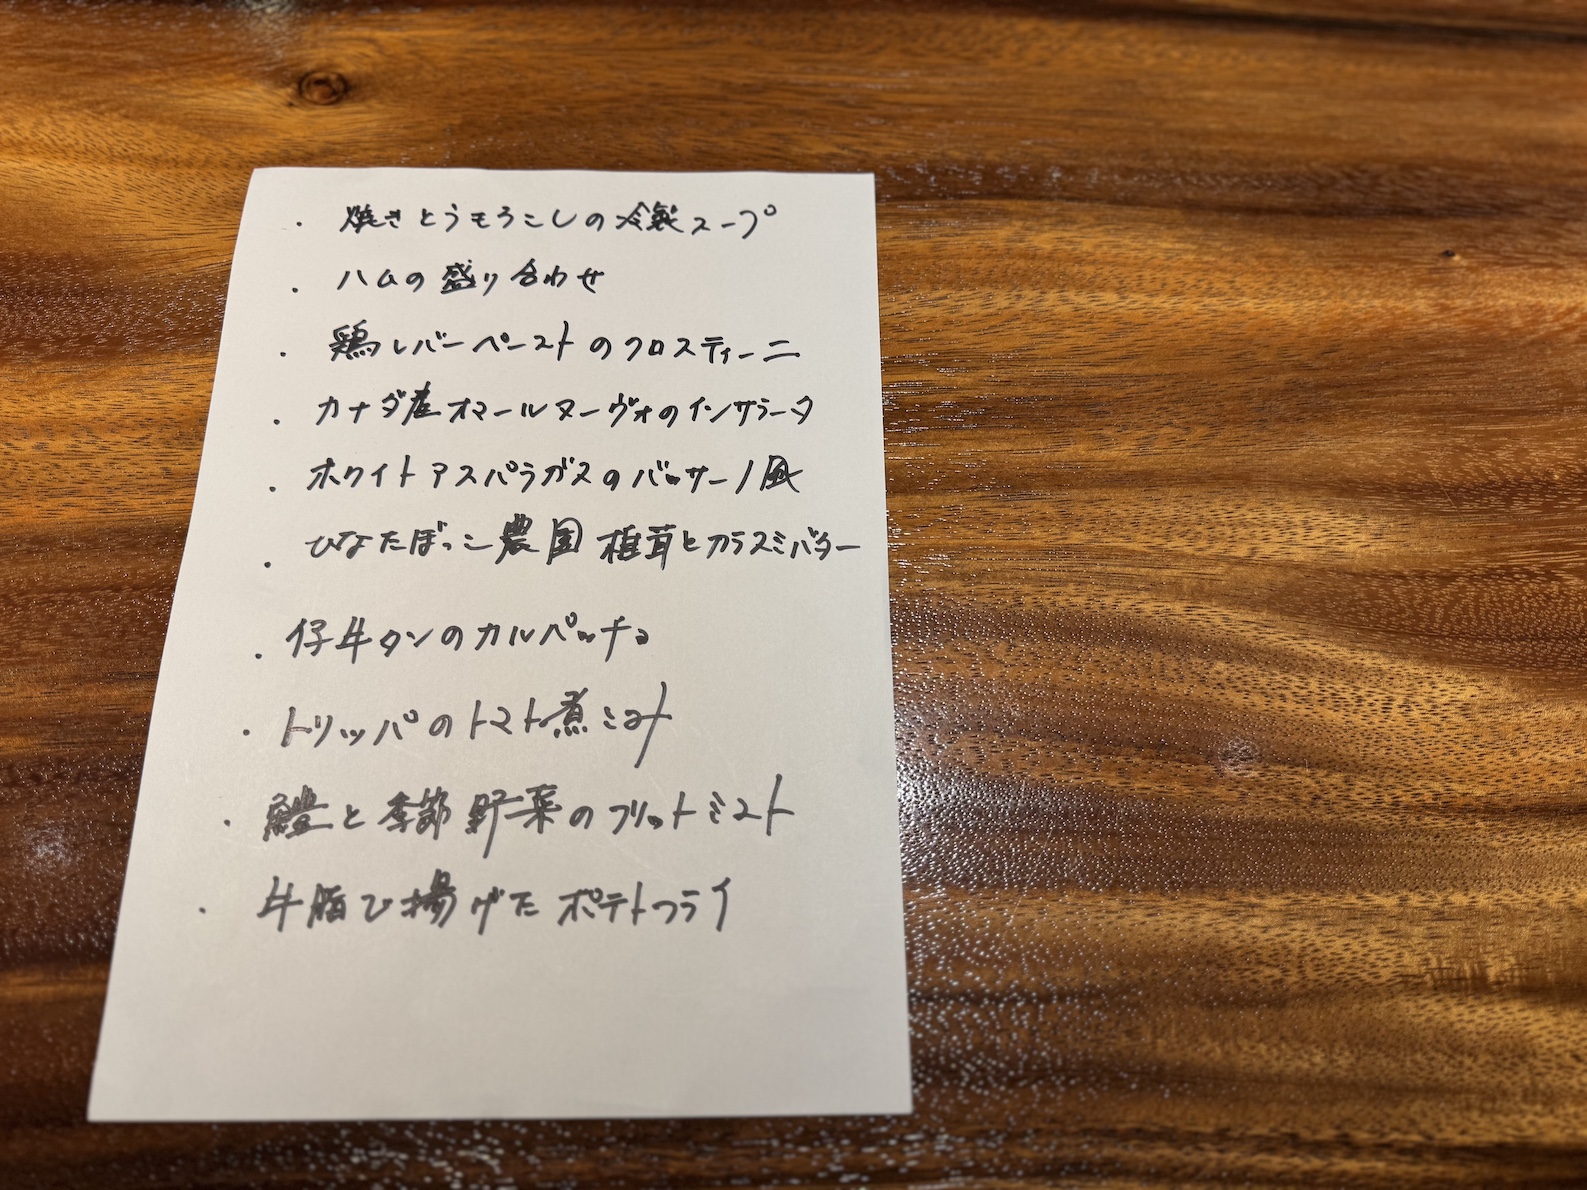 ・焼きとうもろこしの冷製スープ
・ハムの盛り合わせ
・鶏レバーペーストのクロスティーニ
・カナダ産オマールヌーヴォのインサラータ
・ホワイトアスパラガスのバッサーノ風
・ひなたぼっこ農園 椎茸とカラスミバター
・仔牛タンのカルパッチョ
・トリッパのトマト煮こみ
・鱧と季節野菜のフリットミスト
・牛脂で揚げたポテトフライ